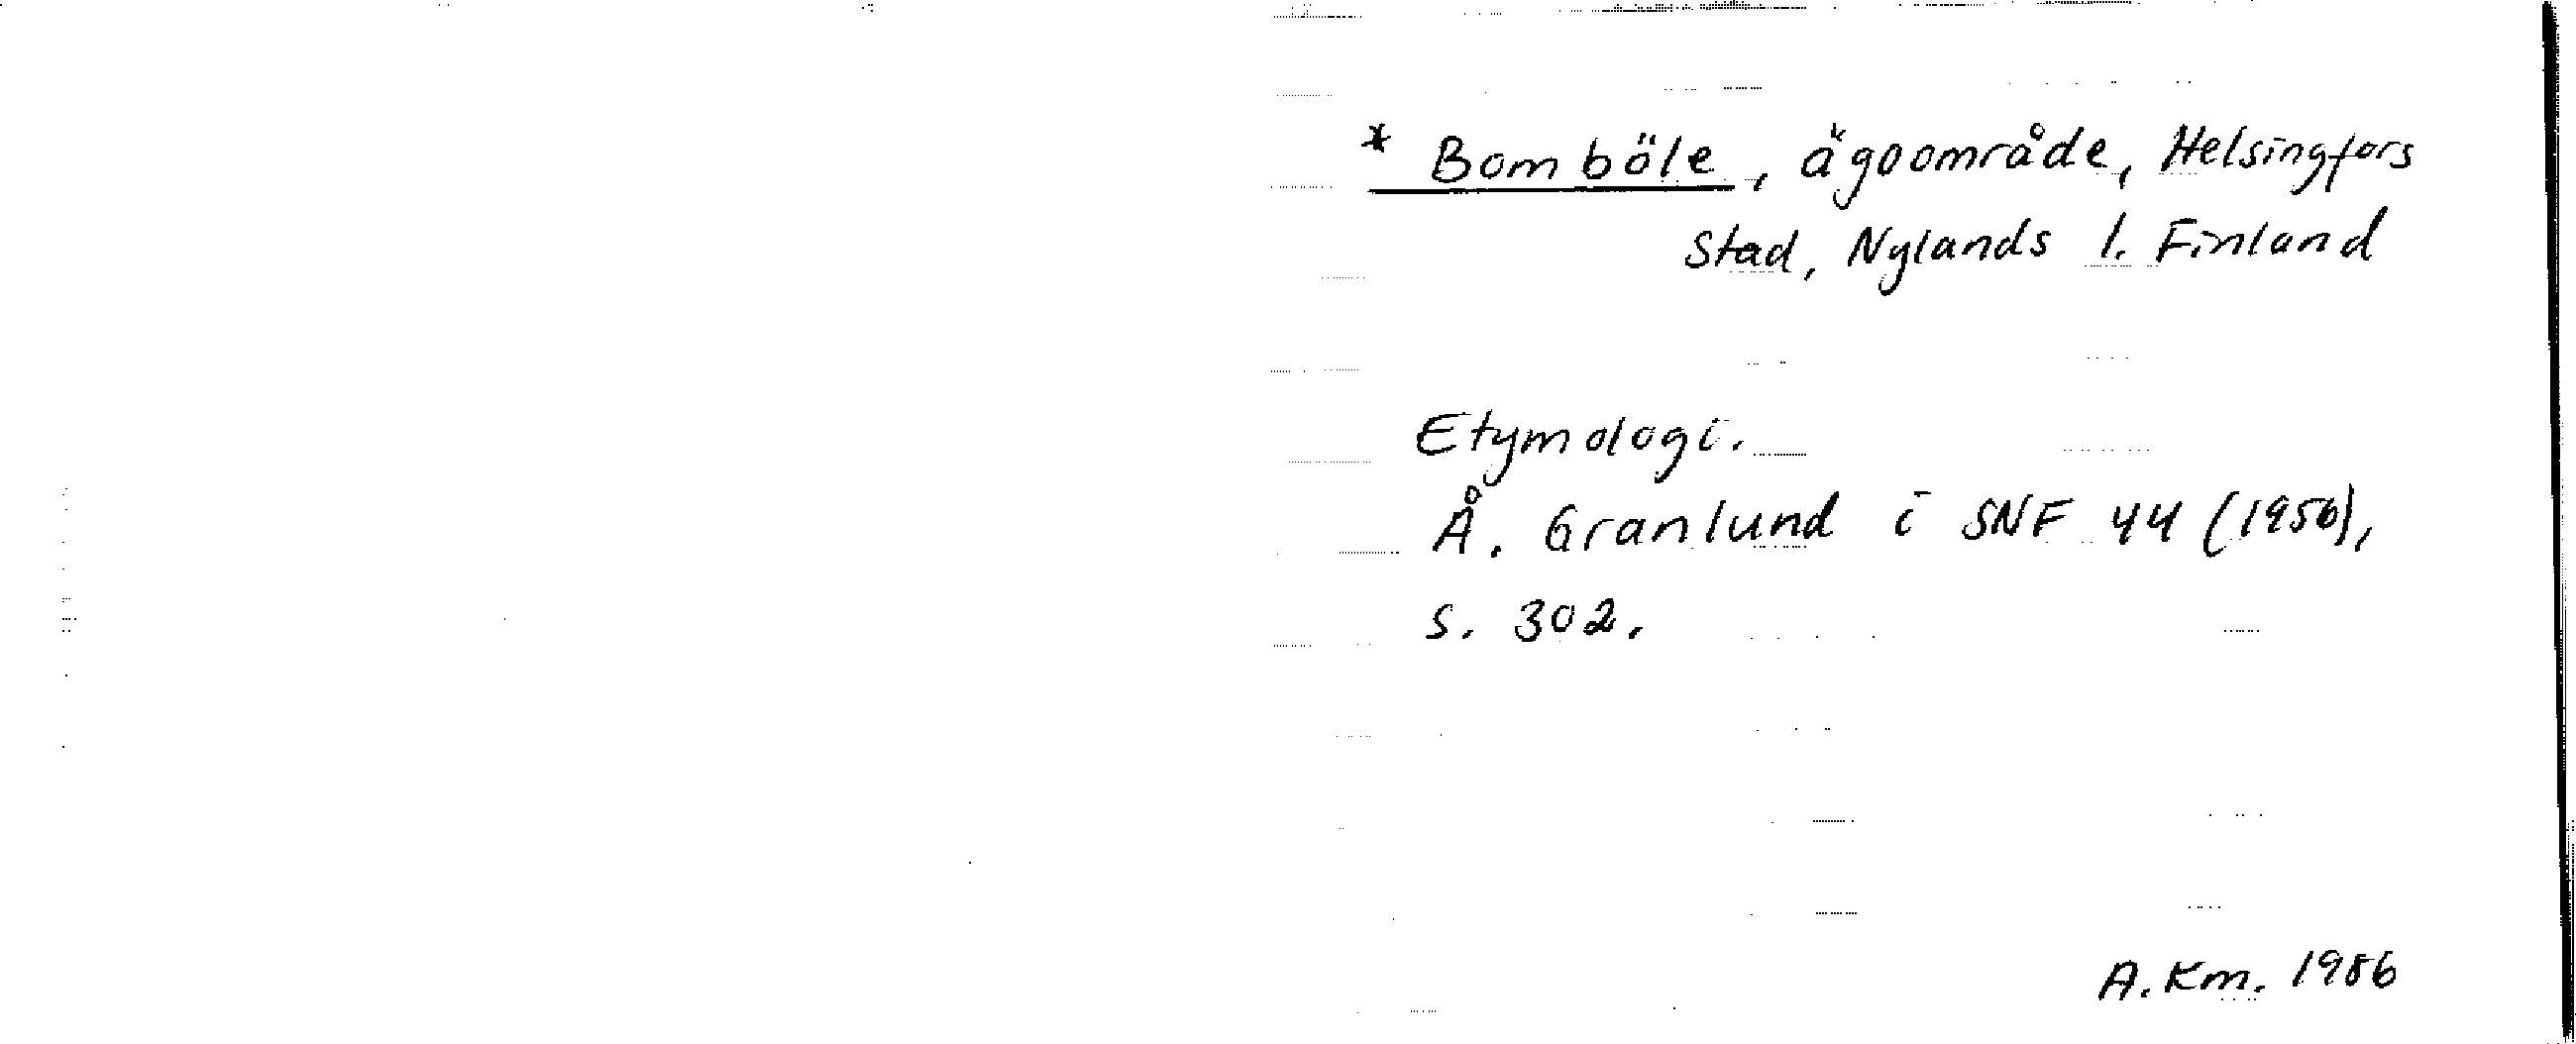 * Bomböle, ägoområde, Helsingfors
Stad, Nylands l. Finland
Etymologi.
Å. Granlund i SNF 44 (1956),
s. 302.
A. Km. 1986